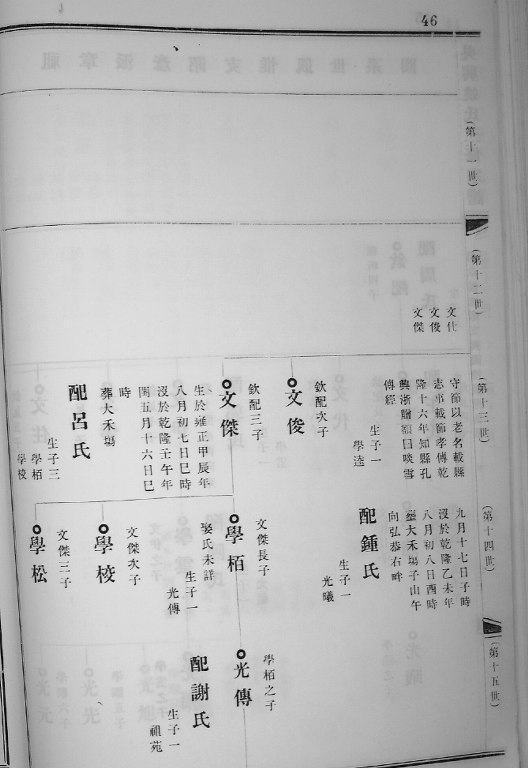 46
(第十一世)
(第十二世)
文仕
文俊
文傑
(第十三世)
守節以老名載縣
志𠂆載節孝傳乾
隆十六年知縣孔
興浙贈額曰啖雪
傳經
生子一
學逵
欽配次子
文俊
欽配三子
文傑
生於雍正甲辰年
八月初七日巳時
沒於乾隆壬午年
閏五月十六日巳
時
葬大禾塲
配呂氏
生子三
學栢
學校
(第十四世)
九月十七日子時
沒於乾隆乙未年
八月初八日酉時
塟大禾塲子山午
向弘恭右畔
配鍾氏
生子一
光曦
文傑長子
學栢
娶氏未詳
生子一
光傳
文傑次子
學校
文傑三子
學松
(第十五世)
學栢之子
光傳
配謝氏
生子一
祖苑